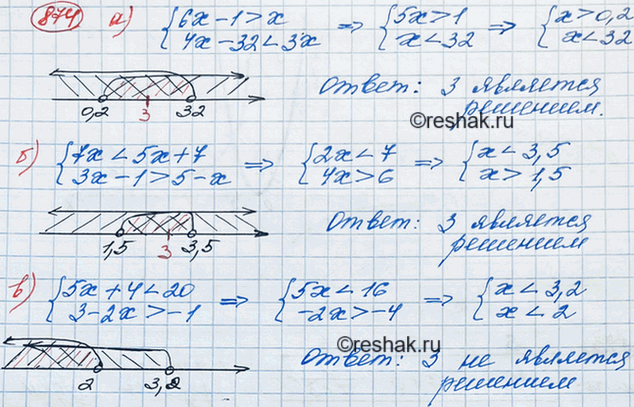 874 а) {6x-1>x => {5x>1 => {x>0,2
4x-32<3x x<32 x<32
0,2 3 32
Ответ: 3 является
решением.
©reshak.ru
б) {7x<5x+7 => {2x<7 => {x<3,5
3x-1>5-x 4x>6 x>1,5
1,5 3 3,5
Ответ: 3 является
решением
в) {5x+4<20 => {5x<16 => {x<3,2
3-2x>-1 -2x>-4 x<2
©reshak.ru
2 3,2
Ответ: 3 не является
решением